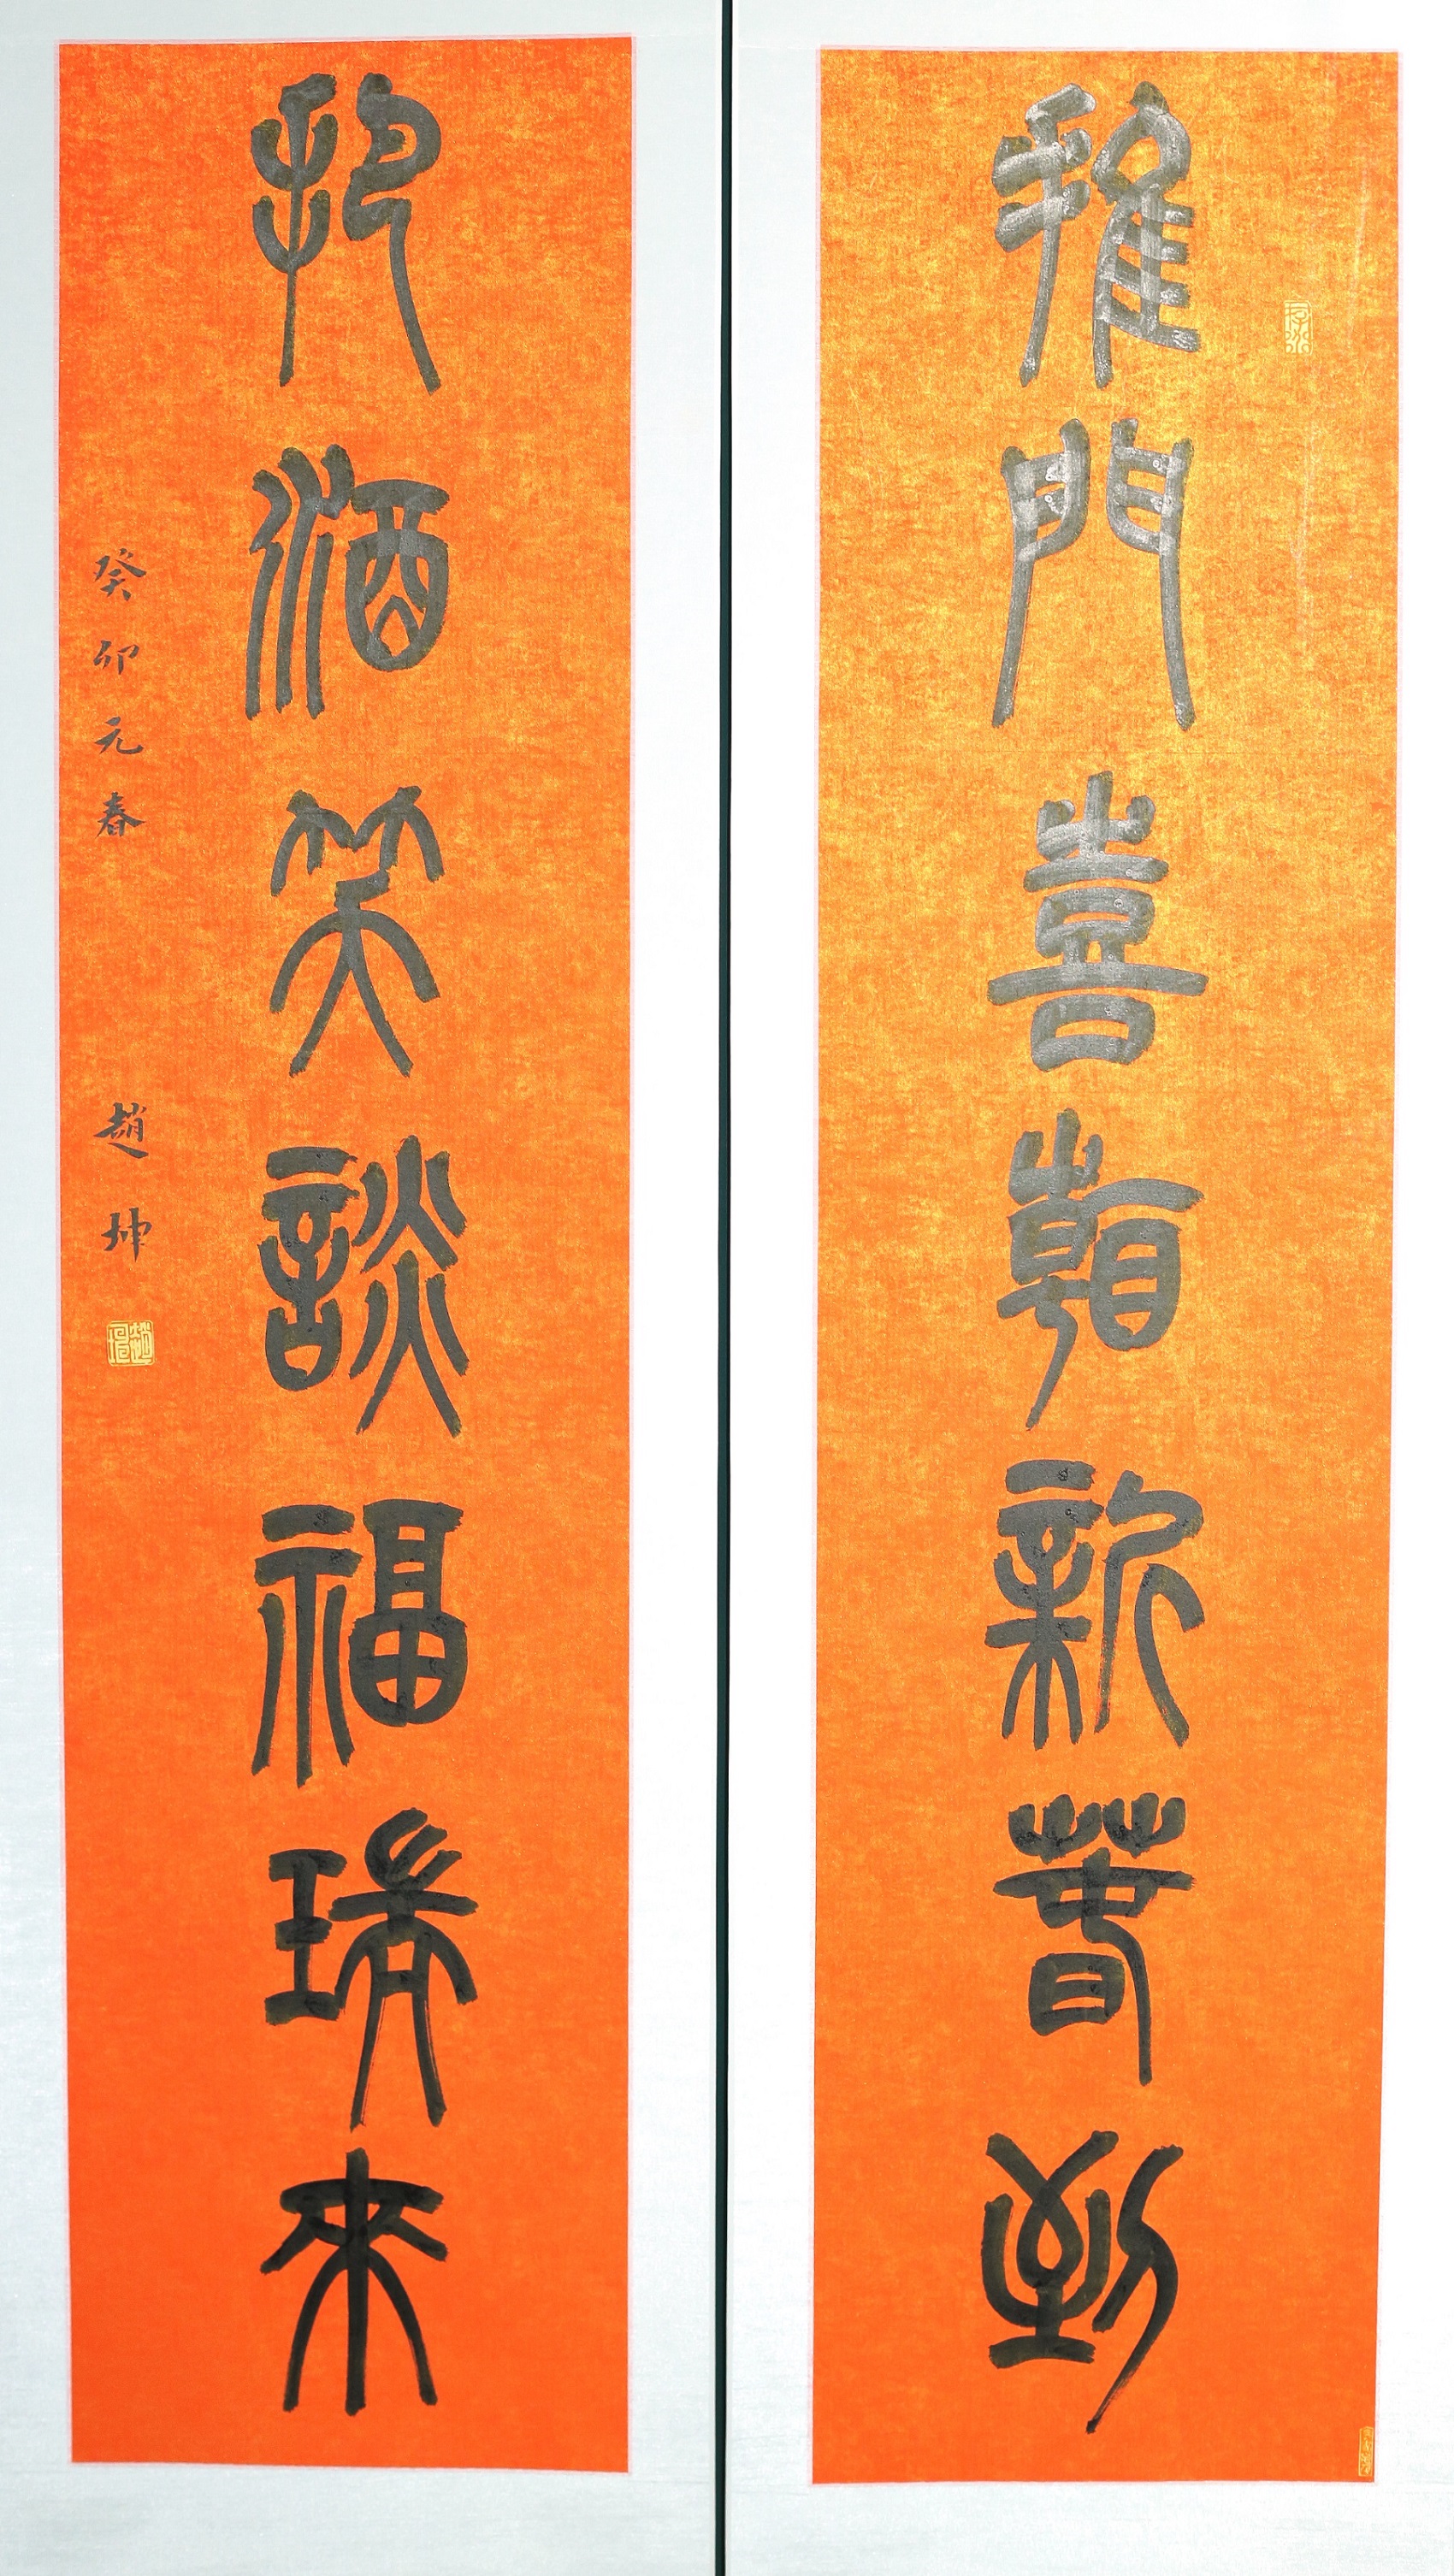 推門喜新春到
把酒笑談福瑞來
癸卯元春 趙坤